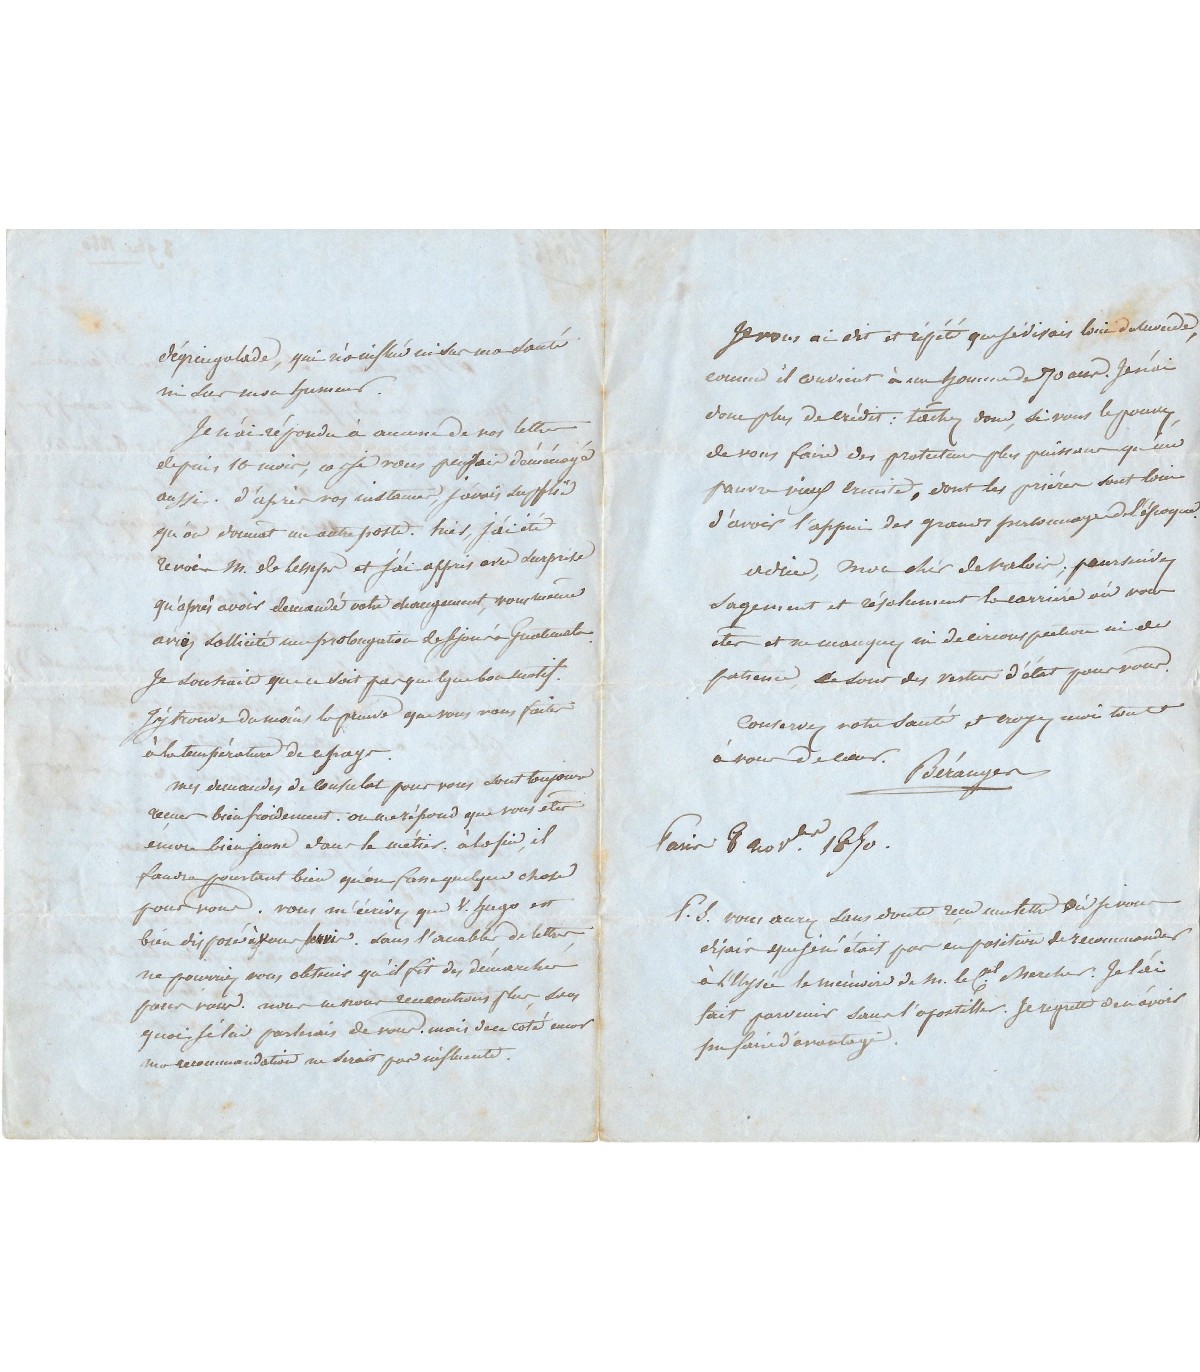 dégringolade, qui n'a influé ni sur ma santé
ni sur mon humeur.
Je n'ai répondu à aucune de vos lettres
depuis 10 mois, car je vous pensais déménagé
aussi. D'après vos instances, j'avais supplié
qu'on donnat un autre poste. hier, j'ai été
revoir M. de Lesseps et j'ai appris avec surprise
qu'après avoir demandé votre changement, vous même
aviez sollicité une prolongation de séjour à Guatemala.
Je souhaite que ce soit par quelque bon motif.
J'y trouve du moins la preuve que vous vous faites
à la température de ce pays.
mes demandes de consulat pour vous sont toujours
reçues bien froidement. on me répond que vous êtes
encore bien jeune dans le métier. à la fin, il
faudra pourtant bien qu'on fasse quelque chose
pour vous. vous m'écrivez que V. hugo est
bien disposé à vous servir. sans l'accabler de lettres
ne pourriez vous obtenir qu'il fit des démarches
pour vous. nous ne nous rencontrons plus sans
quoi, je lui parlerais de vous. mais de ce coté encor
ma recommandation ne serait pas influente.
Je vous ai dit et répété que je vivais loin du monde,
comme il convient à un homme de 70 ans. Je n'ai
donc plus de crédit: tachez donc, si vous le pouvez
de vous faire des protecteurs plus puissans qu'un
pauvre vieux ermite, dont les prières sont loin
d'avoir l'appui des grands personnages de l'époque
adieu, mon cher de Valois; poursuivez
sagement et résolument la carrière où vous
êtes et ne manquez ni de circonspection ni de
patience, ce sont des vertus d'état pour vous.
Conservez votre santé et croyez moi tout
à vous de cœur.
Béranger
Paris 8 novbre 1850.
P. S. vous aurez sans doute reçu ma lettre où je vous
disais que je n'étais pas en position de recommander
à l'Elysée le mémoire de M. le Cel Mercher. Je l'ai
fait parvenir sans l'apostiller. Je regrette de n'avoir
pu faire d'avantage.